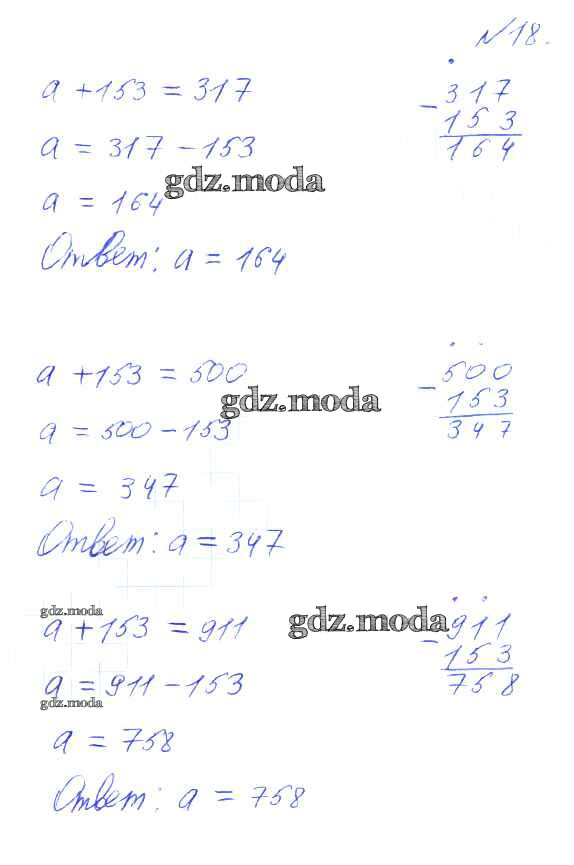 №18.
a + 153 = 317
a = 317 - 153
a = 164
Ответ: a = 164
- 317
153
164
gdz.moda
a + 153 = 500
a = 500 - 153
a = 347
Ответ: a = 347
- 500
153
347
gdz.moda
gdz.moda
a + 153 = 911
a = 911 - 153
gdz.moda
a = 758
Ответ: a = 758
gdz.moda
- 911
153
758